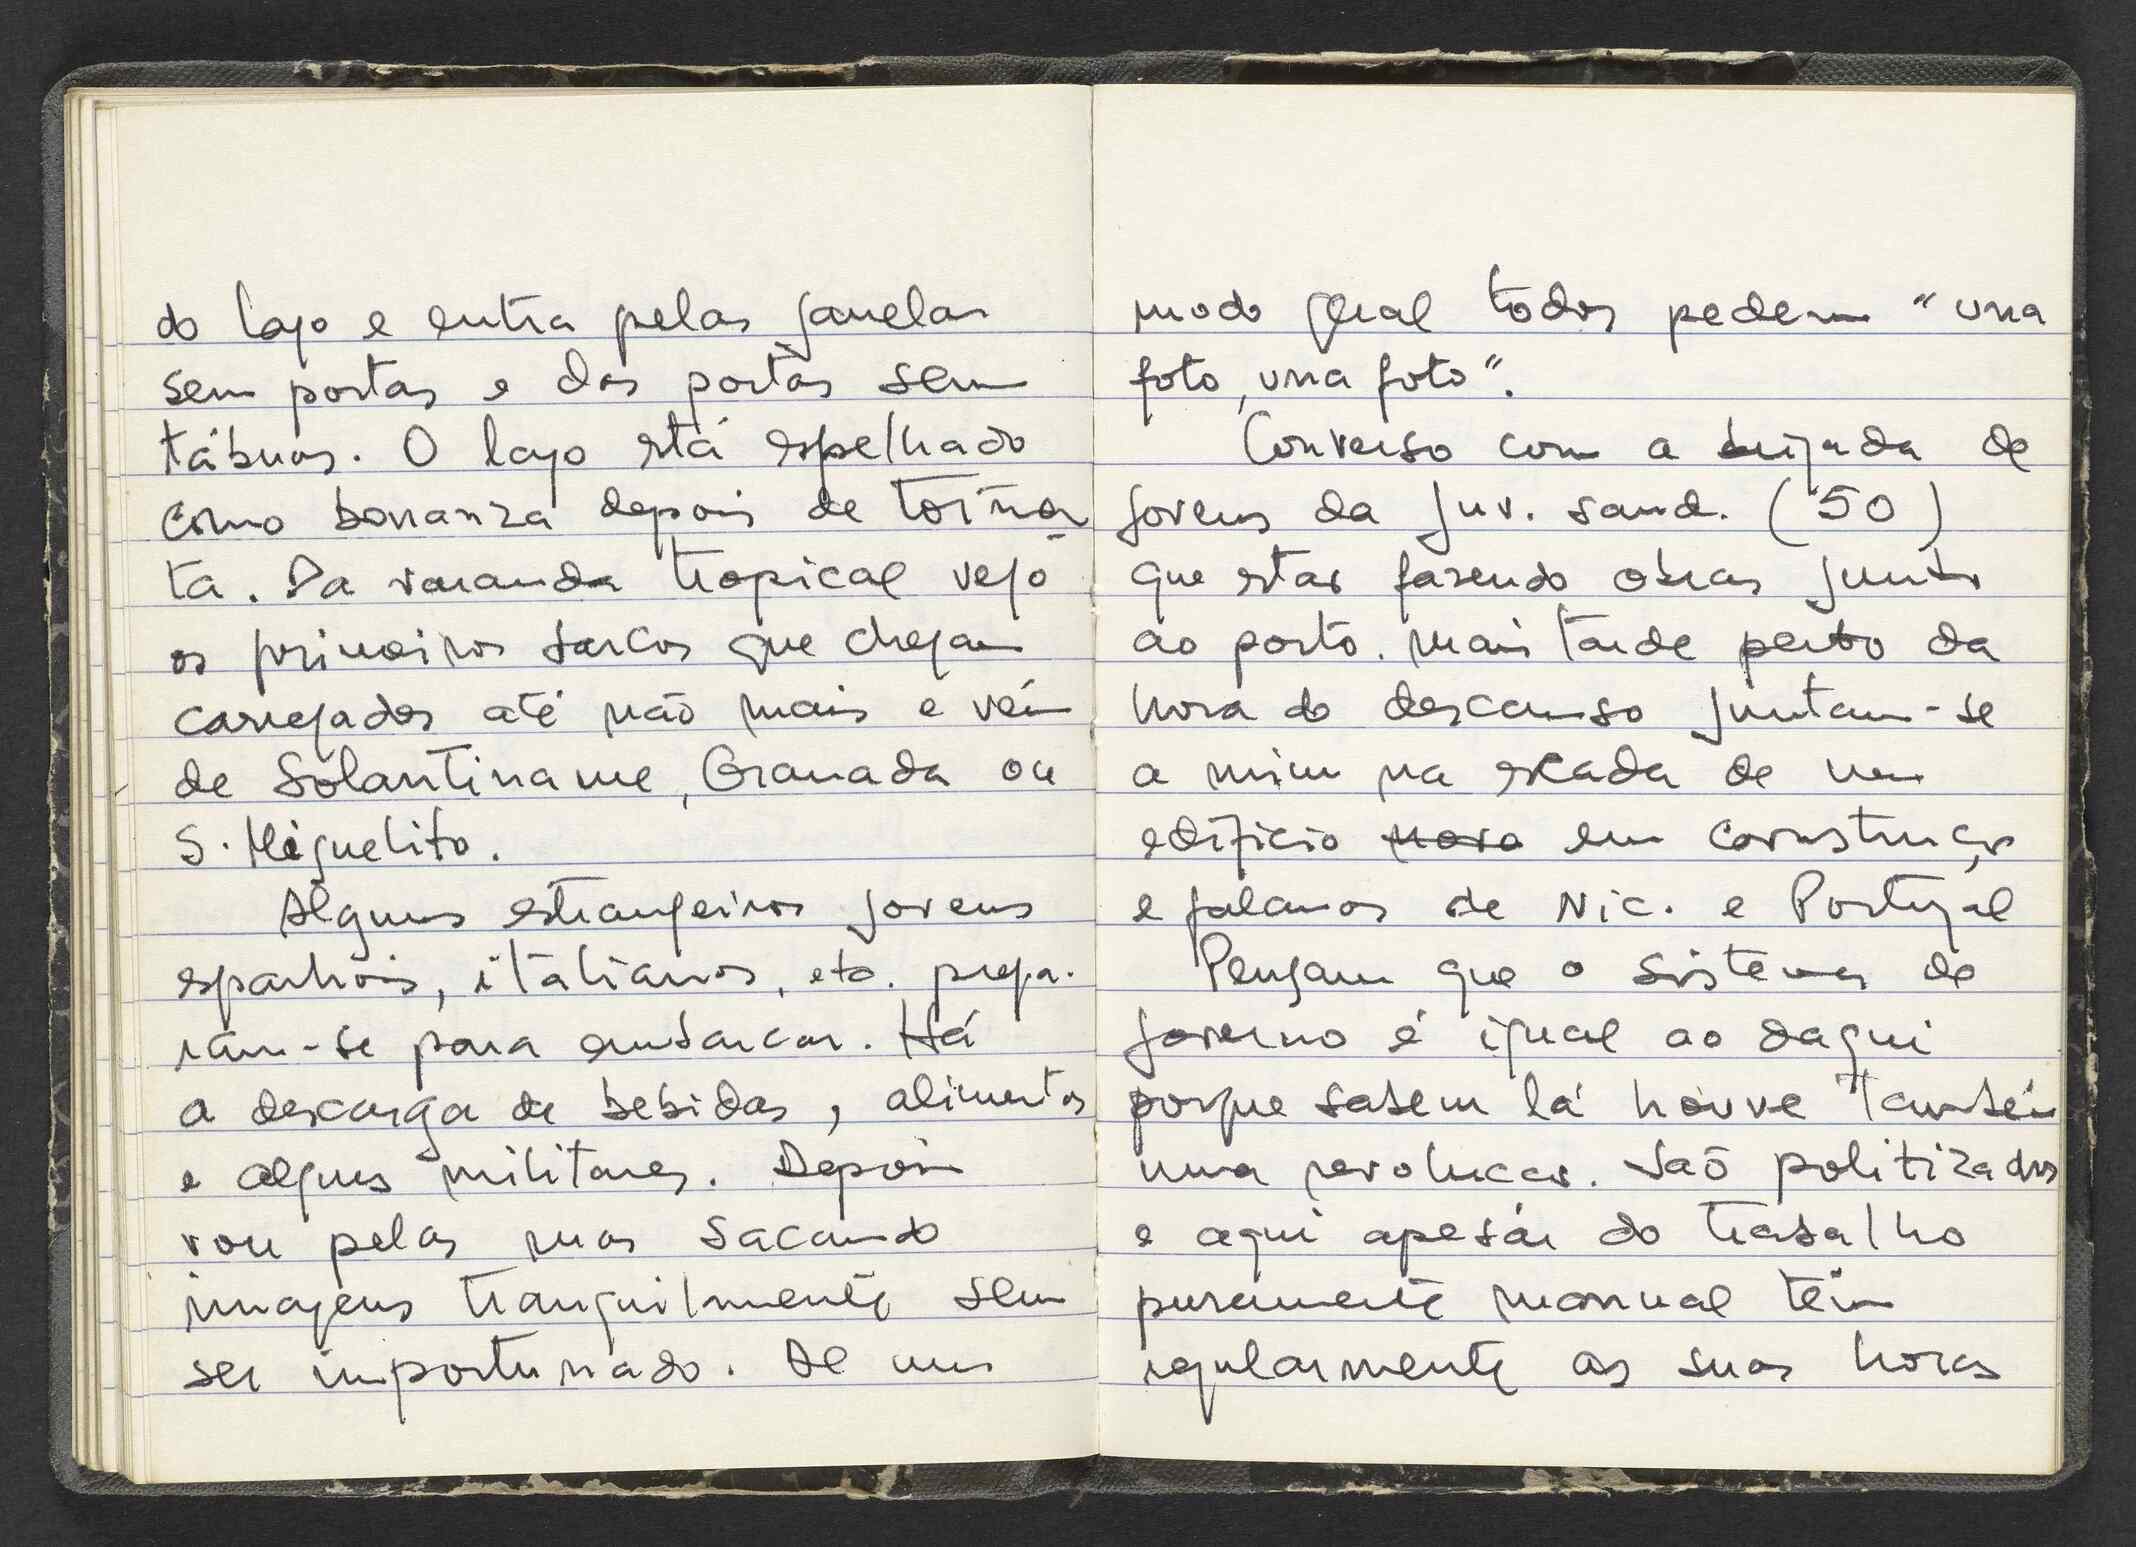 do lago e entra pelas janelas
sem portas e das portas sem
tábuas. O lago está espelhado
como bonanza depois de tormen
ta. Da varanda tropical vejo
os primeiros barcos que chegam
carregados até não mais e vém
de Solantiname, Granada ou
S. Miguelito.
Alguns estrangeiros jovens
espanhois, italianos, etc. prepa-
ram-se para embarcar. Há
a descarga de bebidas, alimentos
e alguns militares. Depois
vou pelas ruas sacando
imagens tranquilmente sem
ser importunado. De um
modo geral todos pedem "una
foto, una foto".
Converso com a brigada de
jovens da juv. sand. (50)
que estão fazendo obras junto
ao porto. Mais tarde perto da
hora do descanso juntam-se
a mim na escada de um
edifício novo em construção
e falamos de Nic. e Portugal
Pensam que o sistema de
governo é igual ao daqui
porque sabem lá houve também
uma revolucão. São politizados
e aqui apesár do trabalho
puramente manual têm
regularmente as suas horas